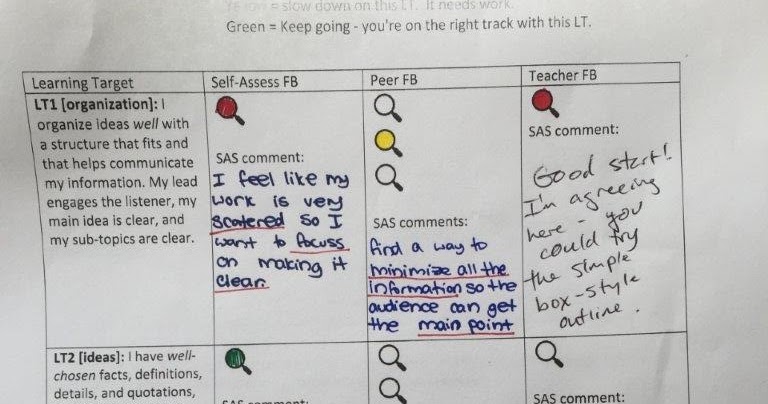 Yellow = slow down on this LT. It needs work.
Green = Keep going - you're on the right track with this LT.
Learning Target
Self-Assess FB
Peer FB
Teacher FB
LT1 [organization]: I
organize ideas well with
a structure that fits and
that helps communicate
my information. My lead
engages the listener, my
main idea is clear, and
my sub-topics are clear.
SAS comment:
I feel like my
work is very
scatered so I
want to focuss
on making it
clear.
SAS comments:
find a way to
minimize all the
information so the
audience can get
the main point
SAS comment:
Good start!
I'm agreeing
here - you
could try
the simple
box-style
outline.
LT2 [ideas]: I have well-
chosen facts, definitions,
details, and quotations,
SAS comment:
SAS comment: